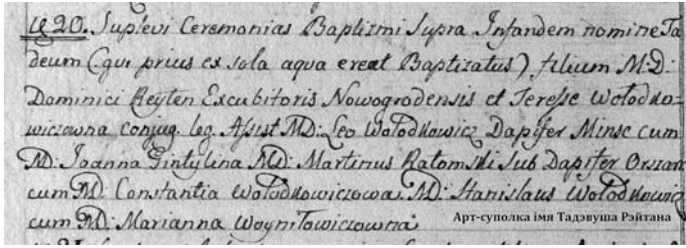 d 20. Suplevi Ceremonias Baptizmi Supra Infandem nomine Ta
deum (qui prius ex sola aqua ereat Baptizatus), filium M: D:
Dominici Reyten Excubitoris Nowogrodensis et Teresse Wołodko-
wiczowna conjug. leg. Assist MD: Leo Wołodkowicz Dapifer Minsc cum
MD: Joanna Gintylina MD: Martinus Ratomski Sub Dapifer Orszan
cum MD: Constantia Wołodkowiczowa MD: Stanislaus Wołodkowicz
cum MD: Marianna Woyniłowiczowna
Арт-суполка імя Тадэвуша Рэйтана